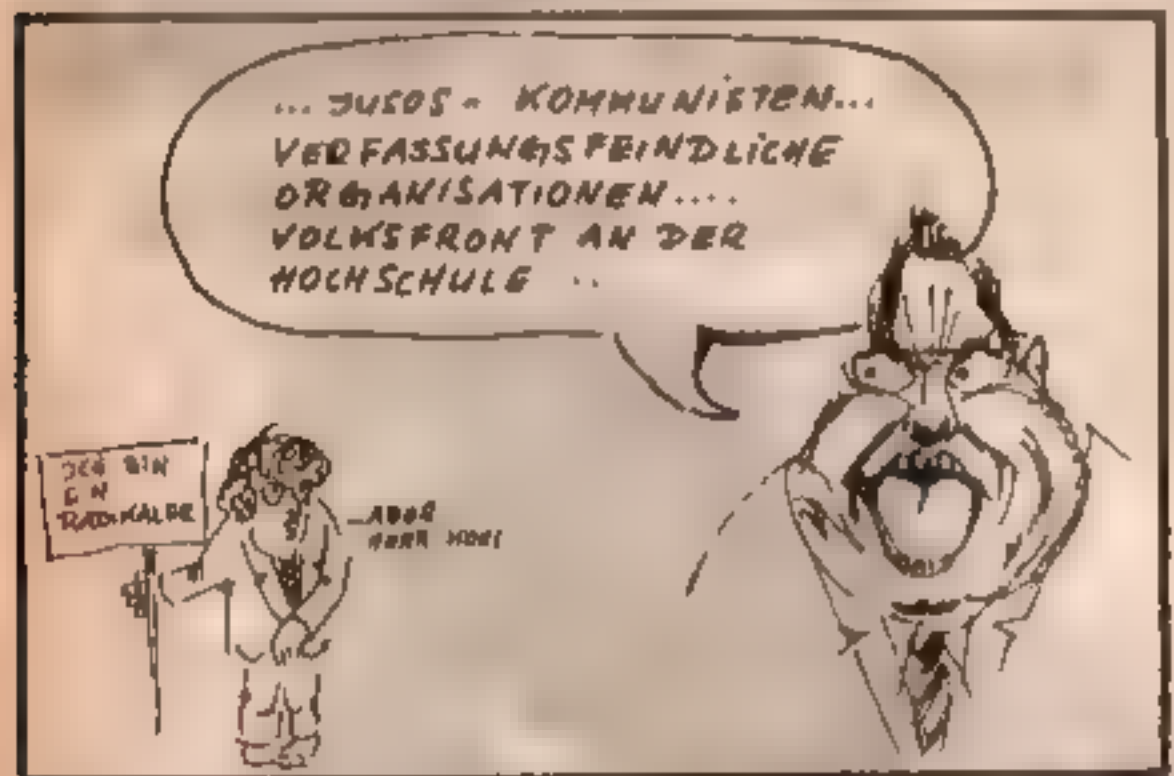 ... JUSOS - KOMMUNISTEN...
VERFASSUNGSFEINDLICHE
ORGANISATIONEN....
VOLKSFRONT AN DER
HOCHSCHULE ..
BIN
RADIKALER